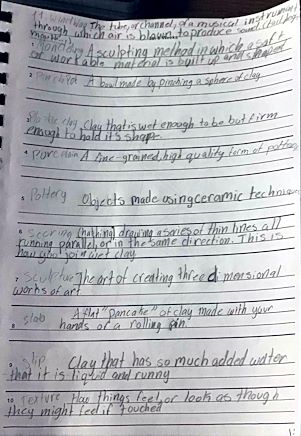 11. The tube, or channel, of a musical instrument
through which air is blown, to produce sound.
1 Modeling A sculpting method in which a soft
or workable material is built up and shaped
2 Pinch Pot A bowl made by pinching a sphere of clay.
3 Plastic clay Clay that is wet enough to be but firm
enough to hold it's shape
4 Porcelain A fine-grained, high quality form of pottery
5 Pottery Objects made using ceramic techniques
6 Scoring (hathing) drawing a series of thin lines all
running parallel, or in the same direction. This is
how you join wet clay
7 Sculpture The art of creating three dimensional
works of art.
8 slab A flat "Pancake" of clay made with your
hands or a rolling pin.
9 Slip Clay that has so much added water
that it is liquid and runny
10 Texture How things feel, or look as though
they might feel if touched